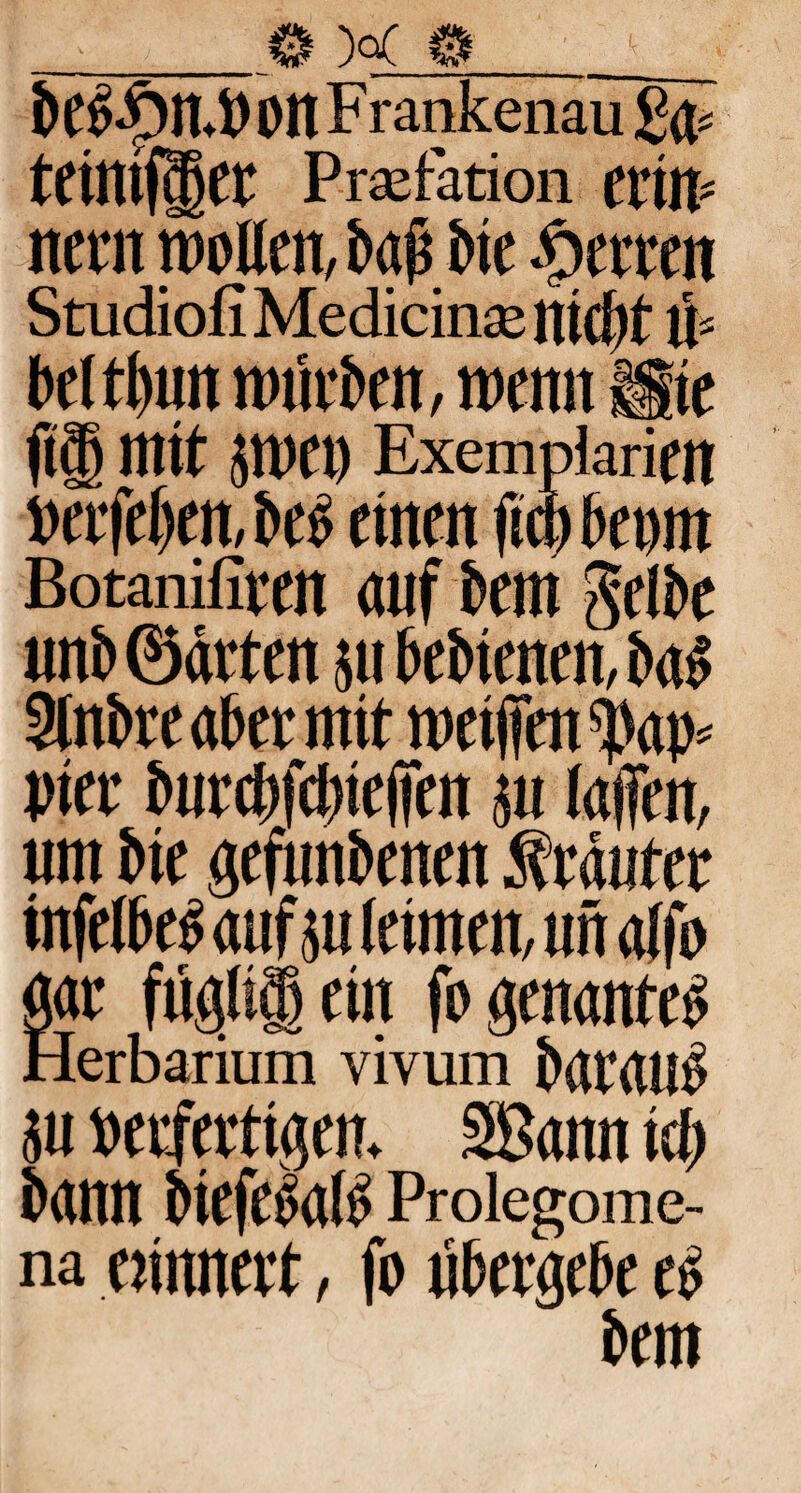 )o(
deß Hn. von Frankenau La⸗
teinischer Præfation erin⸗
nern wollen, daß die Herren
Studiosi Medicinæ nicht ü⸗
bel thun würden, wenn Sie
sich mit zwey Exemplarien
versehen, des einen sich beym
Botanisiren auf dem Felde
und Gärten zu bedienen, das
Andre aber mit weissen Pap⸗
pier durchschiessen zu lassen,
um die gefundenen Kräuter
in selbes auf zu leimen, uñ also
gar füglich ein so genantes
Herbarium vivum daraus
zu verfertigen. Wann ich
dann dieses als Prolegome-
na erinnert, so übergebe es
dem